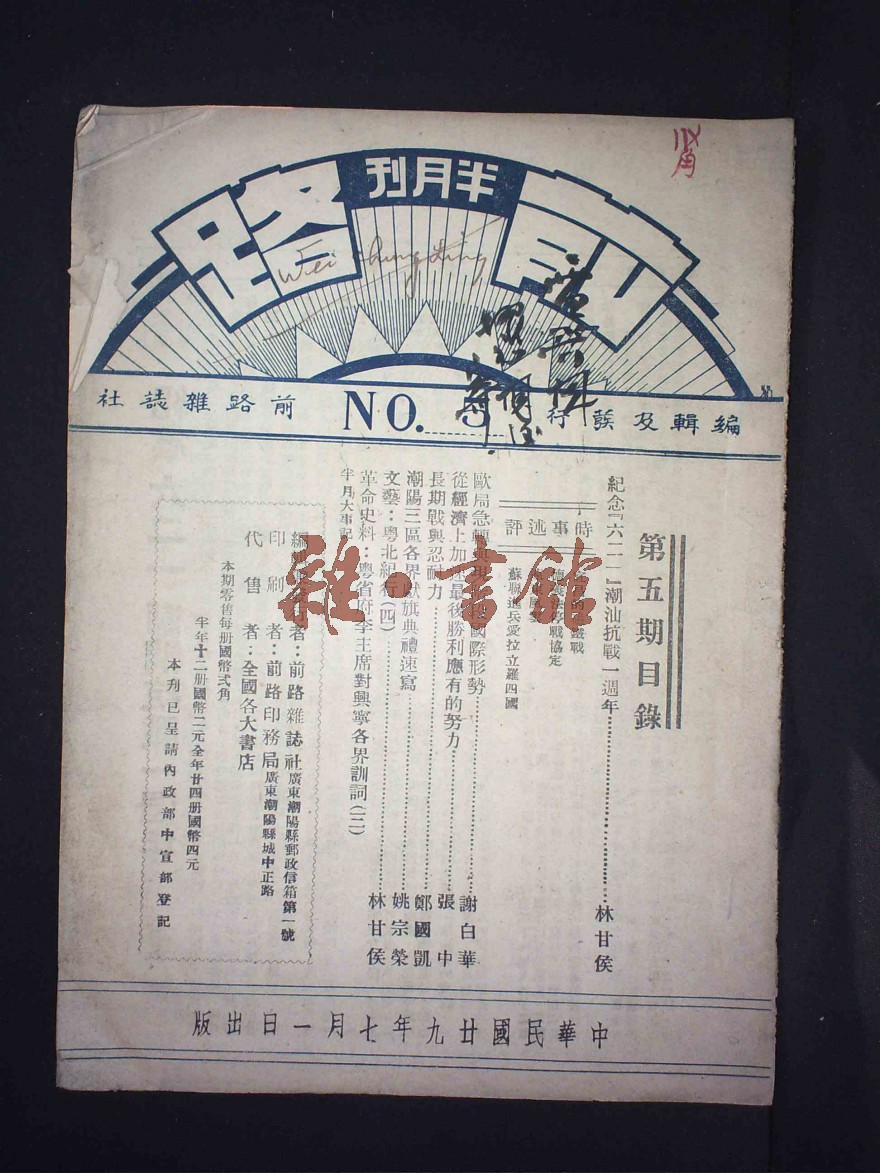 前路
半月刊
Wei chung Ling
編輯及發行 NO. 5 前路雜誌社
第五期目錄
紀念『六二一』潮汕抗戰一週年 林甘侯
時事述評
蘇聯進兵愛拉立羅四國
歐局急轉與現 國際形勢 謝白華
從經濟上加 最後勝利應有的努力 張中
長期戰與忍耐力 鄭國凱
潮陽三區各界獻旗典禮速寫 姚宗榮
文藝：粵北紀行(四) 林甘侯
革命史料：粵省府李主席對興寧各界訓詞(二)
半月大事記
編 行者：前路雜誌社 廣東潮陽縣郵政信箱第一號
印刷者：前路印務局 廣東潮陽縣城中正路
代售者：全國各大書店
本期零售每册國幣弍角
半年十二册國幣二元全年廿四册國幣四元
本刋已呈請內政部中宣部登記
中華民國廿九年七月一日出版
雜·書館